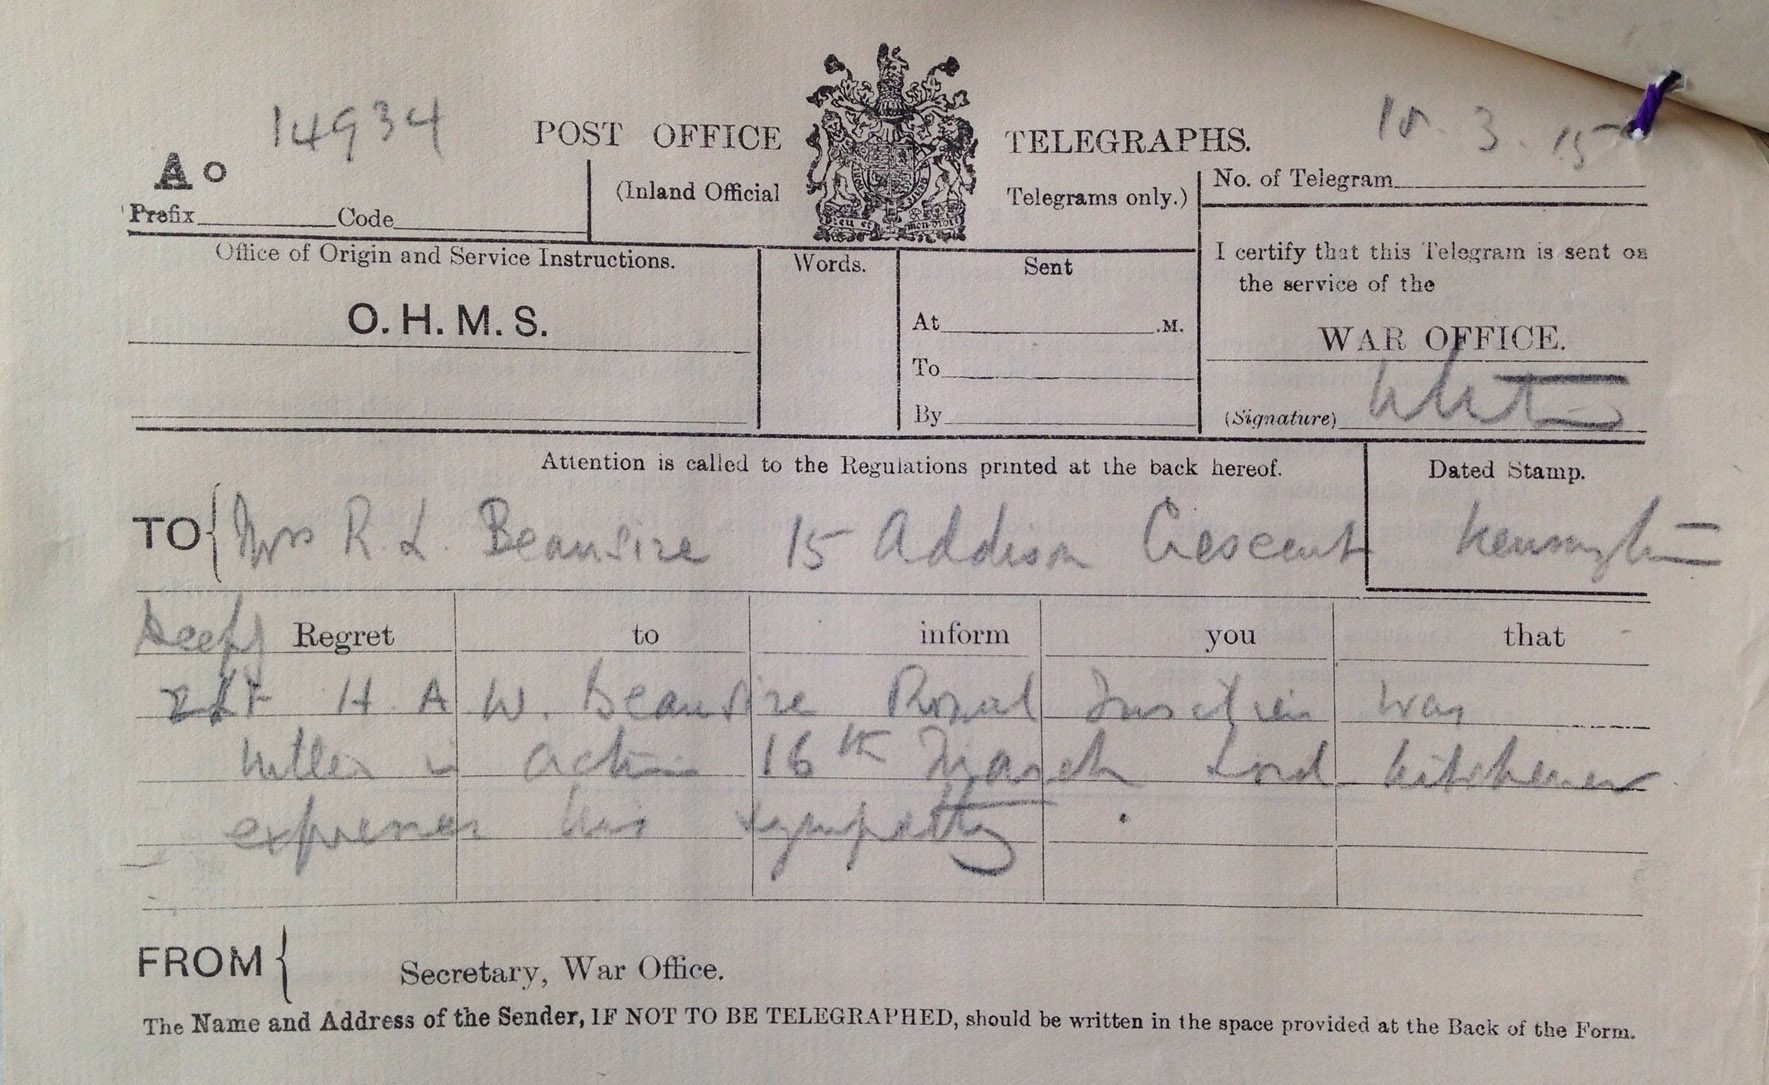 14934
18.3.15
POST OFFICE TELEGRAPHS.
A o
(Inland Official Telegrams only.)
No. of Telegram
Prefix Code
Office of Origin and Service Instructions.
O.H.M.S.
Words.
Sent
At .M.
To
By
I certify that this Telegram is sent on
the service of the
WAR OFFICE.
(Signature)
Attention is called to the Regulations printed at the back hereof.
Dated Stamp.
TO Mrs R. L. Beausire 15 Addison Crescent Kensington
Deeply Regret to inform you that
2 Lt H. A W. Beausire Royal was
killed in action 16th March Lord Kitchener
expresses his sympathy.
FROM Secretary, War Office.
The Name and Address of the Sender, IF NOT TO BE TELEGRAPHED, should be written in the space provided at the Back of the Form.